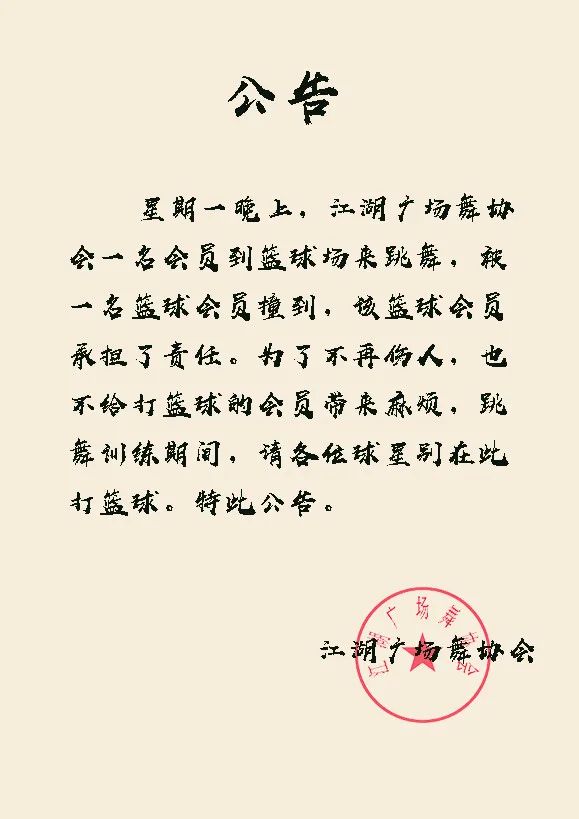 公告
星期一晚上，江湖广场舞协
会一名会员到篮球场来跳舞，被
一名篮球会员撞到，该篮球会员
承担了责任。为了不再伤人，也
不给打篮球的会员带来麻烦，跳
舞训练期间，请各位球星别在此
打篮球。特此公告。
江湖广场舞协会
江湖广场舞协会